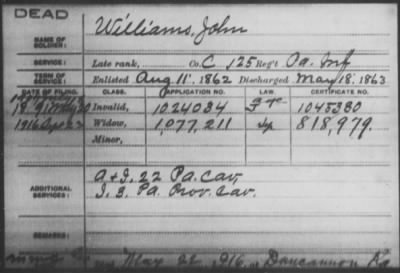 DEAD
NAME OF SOLDIER: Williams, John
SERVICE: Late rank, Co. C 125 Reg't Pa. Inf
TERM OF SERVICE: Enlisted Aug 11, 1862 Discharged May 18, 1863
DATE OF FILING. CLASS. APPLICATION NO. LAW. CERTIFICATE NO.
Invalid, 1024034 1045380
1916 Widow, 1,077,211 818,979.
Minor,
ADDITIONAL SERVICES: A & I, 22 Pa. Cav,
I, 3, Pa. Prov. Cav.
REMARKS:
May 22, 1916, at Duncannon Pa